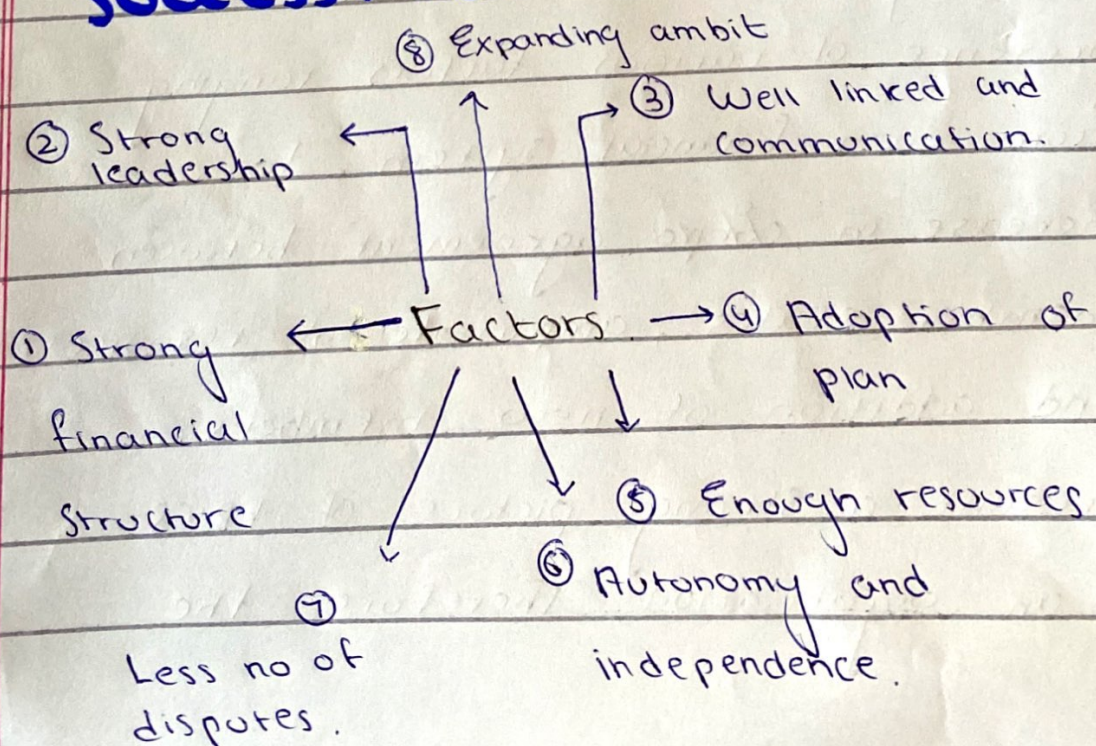 ⑧ Expanding ambit
② Strong
leadership
③ Well linked and
communication.
① Strong
financial
structure
Factors
④ Adoption of
plan
⑤ Enough resources
⑥ Autonomy and
independence.
⑦
Less no of
disputes.